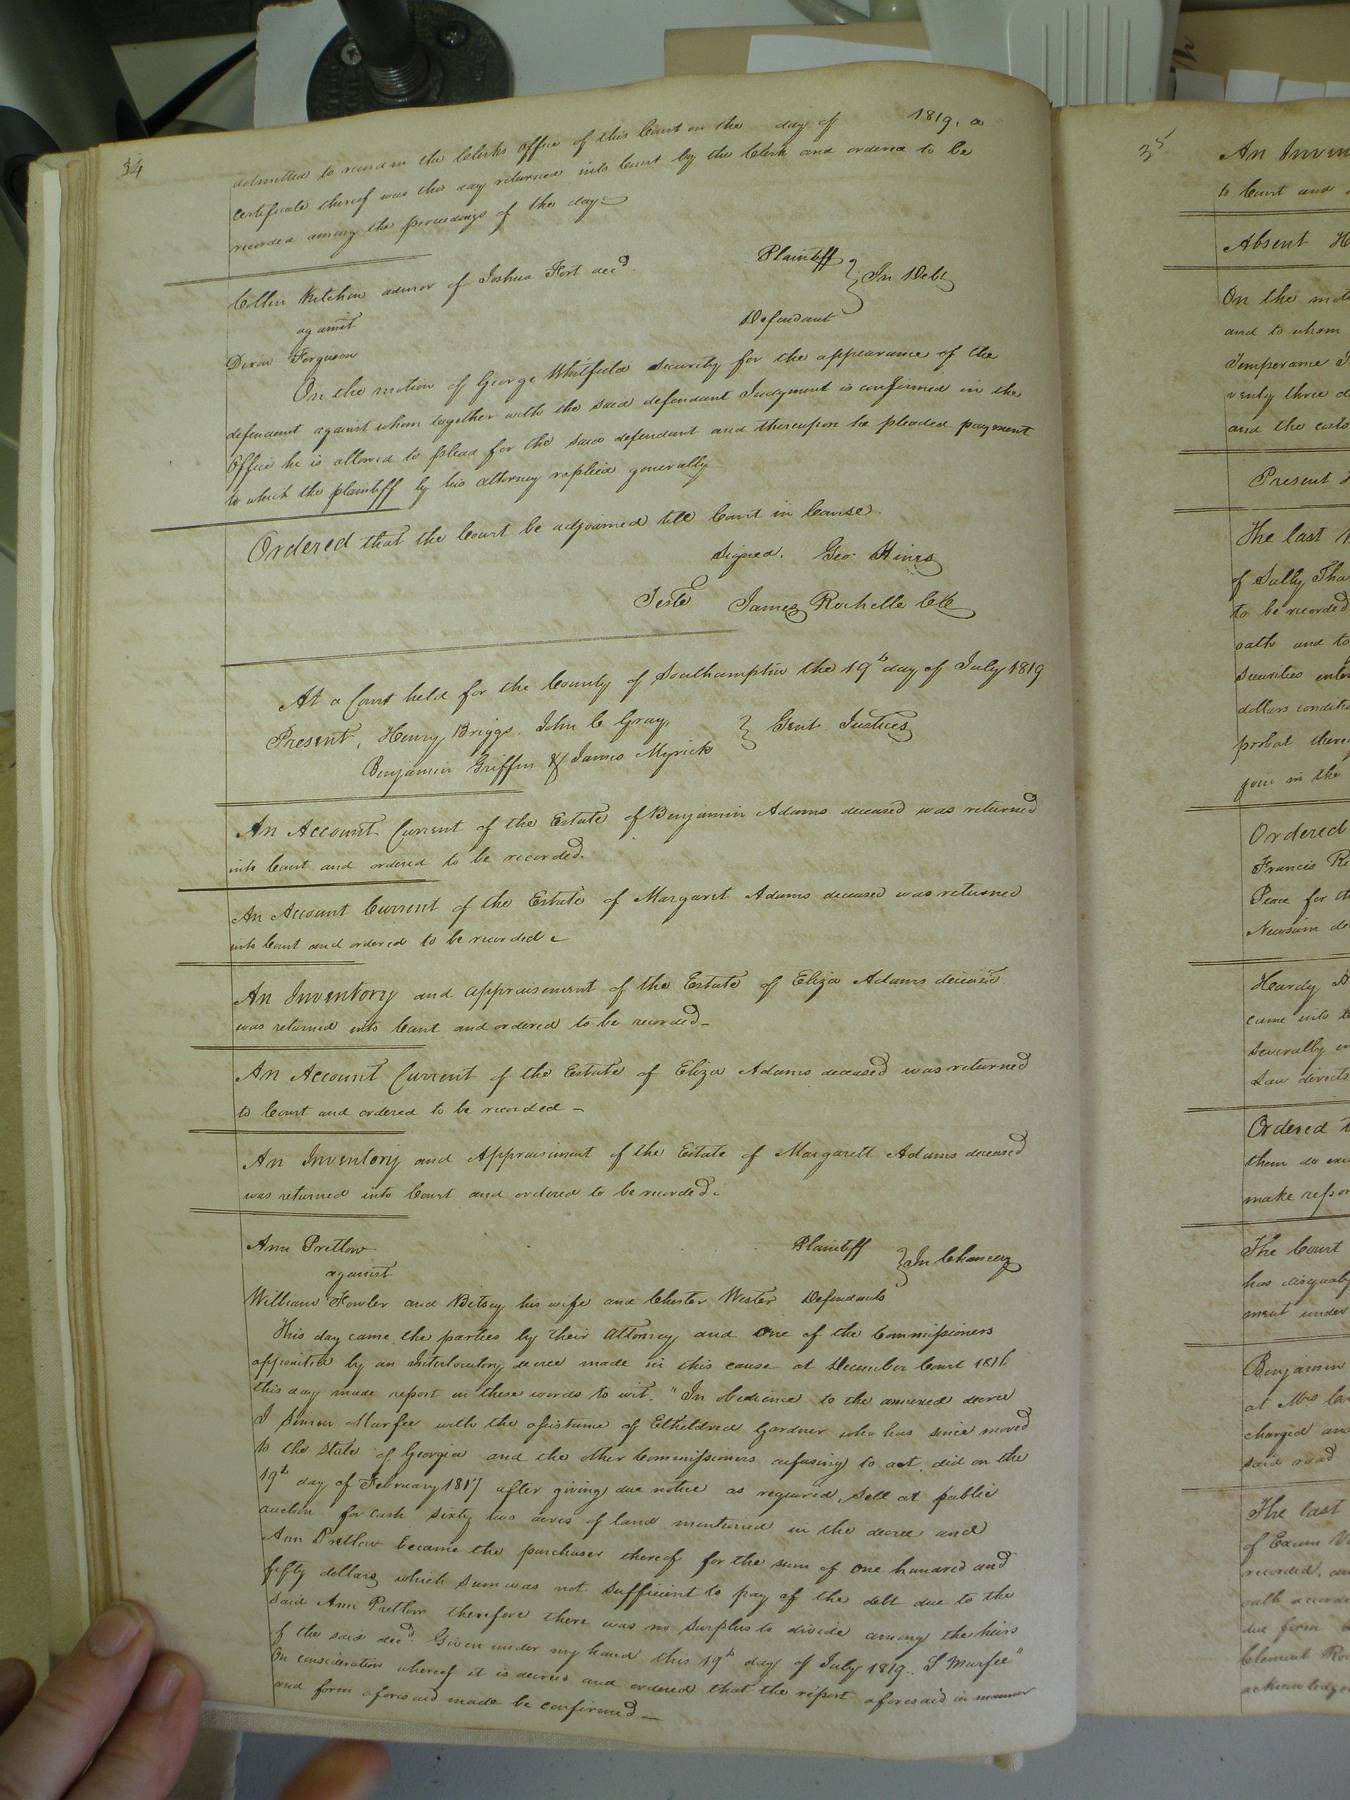 34
admitted to record in the Clerks office of this Court on the day of 1819. a
certificate thereof was this day returned into Court by the Clerk and ordered to be
recorded among the proceedings of the day.
Collin Kitchen admor of Joshua Fort decd. Plaintiff
against In Debt
Dixon Ferguson Defendant
On the motion of George Whitfield security for the appearance of the
defendant against whom together with the said defendant Judgment is confirmed in the
Office he is allowed to plead for the said defendant and thereupon he pleaded payment
to which the plaintiff by his attorney replied generally
Ordered that the Court be adjourned till Court in Course.
Signed. Geo: Hines
Teste James Rochelle Clk
At a Court held for the County of Southampton the 19th day of July 1819
Present, Henry Briggs, John C Gray,
Benjamin Griffin & James Myrick Gent Justices
An Account Current of the Estate of Benjamin Adams deceased was returned
into Court and ordered to be recorded.
An Account Current of the Estate of Margaret Adams deceased was returned
into Court and ordered to be recorded
An Inventory and appraisement of the Estate of Eliza Adams deceased
was returned into Court and ordered to be recorded—
An Account Current of the Estate of Eliza Adams deceased was returned
to Court and ordered to be recorded—
An Inventory and Appraisement of the Estate of Margarett Adams deceased
was returned into Court and ordered to be recorded.
Ann Pretlow Plaintiff
against In Chancery
William Fowler and Betsey his wife and Chester Wester Defendants
This day came the parties by their attorney and one of the Commissioners
appointed by an Interlocutory decree made in this cause at December Court 1816
this day made report in these words to wit. "In obedience to the annexed decree
I Simon Murfee with the assistance of Etheldred Gardner who has since moved
to the State of Georgia and the other Commissioners refusing to act, did on the
19th day of February 1817 after giving due notice as required, sell at public
auction for cash sixty two acres of land mentioned in the decree and
Ann Pretlow became the purchaser thereof for the sum of one hundred and
fifty dollars which sum was not sufficient to pay of the debt due to the
said Ann Pretlow therefore there was no surplus to divide among the heirs
of the said decd. Given under my hand this 19th day of July 1819.. S Murfee"
On consideration whereof it is decreed and ordered that the report aforesaid in manner
and form aforesaid made be confirmed—
35
An Inven
to Court and
Absent H
On the moti
and to whom
Temperance
venty three d
and the costs
Present
The last
of Sally Tha
to be recorded
oath and to
Securities enter
dollars conditio
probat there
form in the
Ordered
Francis R
Peace for th
Newsum de
Hardy
came into
severally
Law directs
Ordered
them do exa
make repor
The Court
has
ment under
Benjamin
at Mrs
charged and
said road
The last
of Exum
recorded, an
oath accord
due form
Clement Ro
acknowledge